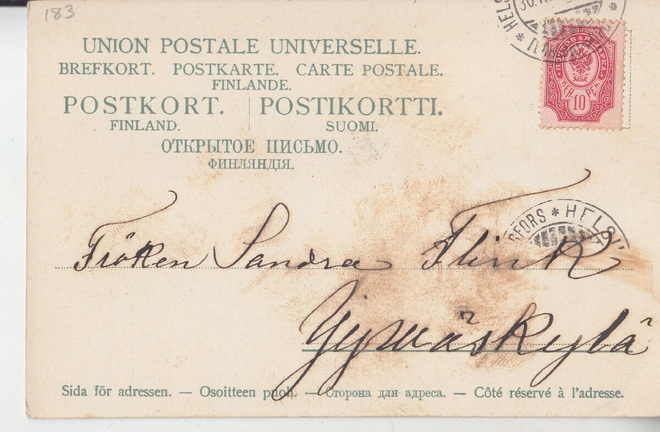 183
UNION POSTALE UNIVERSELLE.
BREFKORT. POSTKARTE. CARTE POSTALE.
FINLANDE.
POSTKORT. POSTIKORTTI.
FINLAND. SUOMI.
ОТКРЫТОЕ ПИСЬМО.
ФИНЛЯНДІЯ.
10
Fröken Sandra Flink
Jyväskylä
Sida för adressen. — Osoitteen puoli. — Сторона для адреса. — Côté réservé à l'adresse.